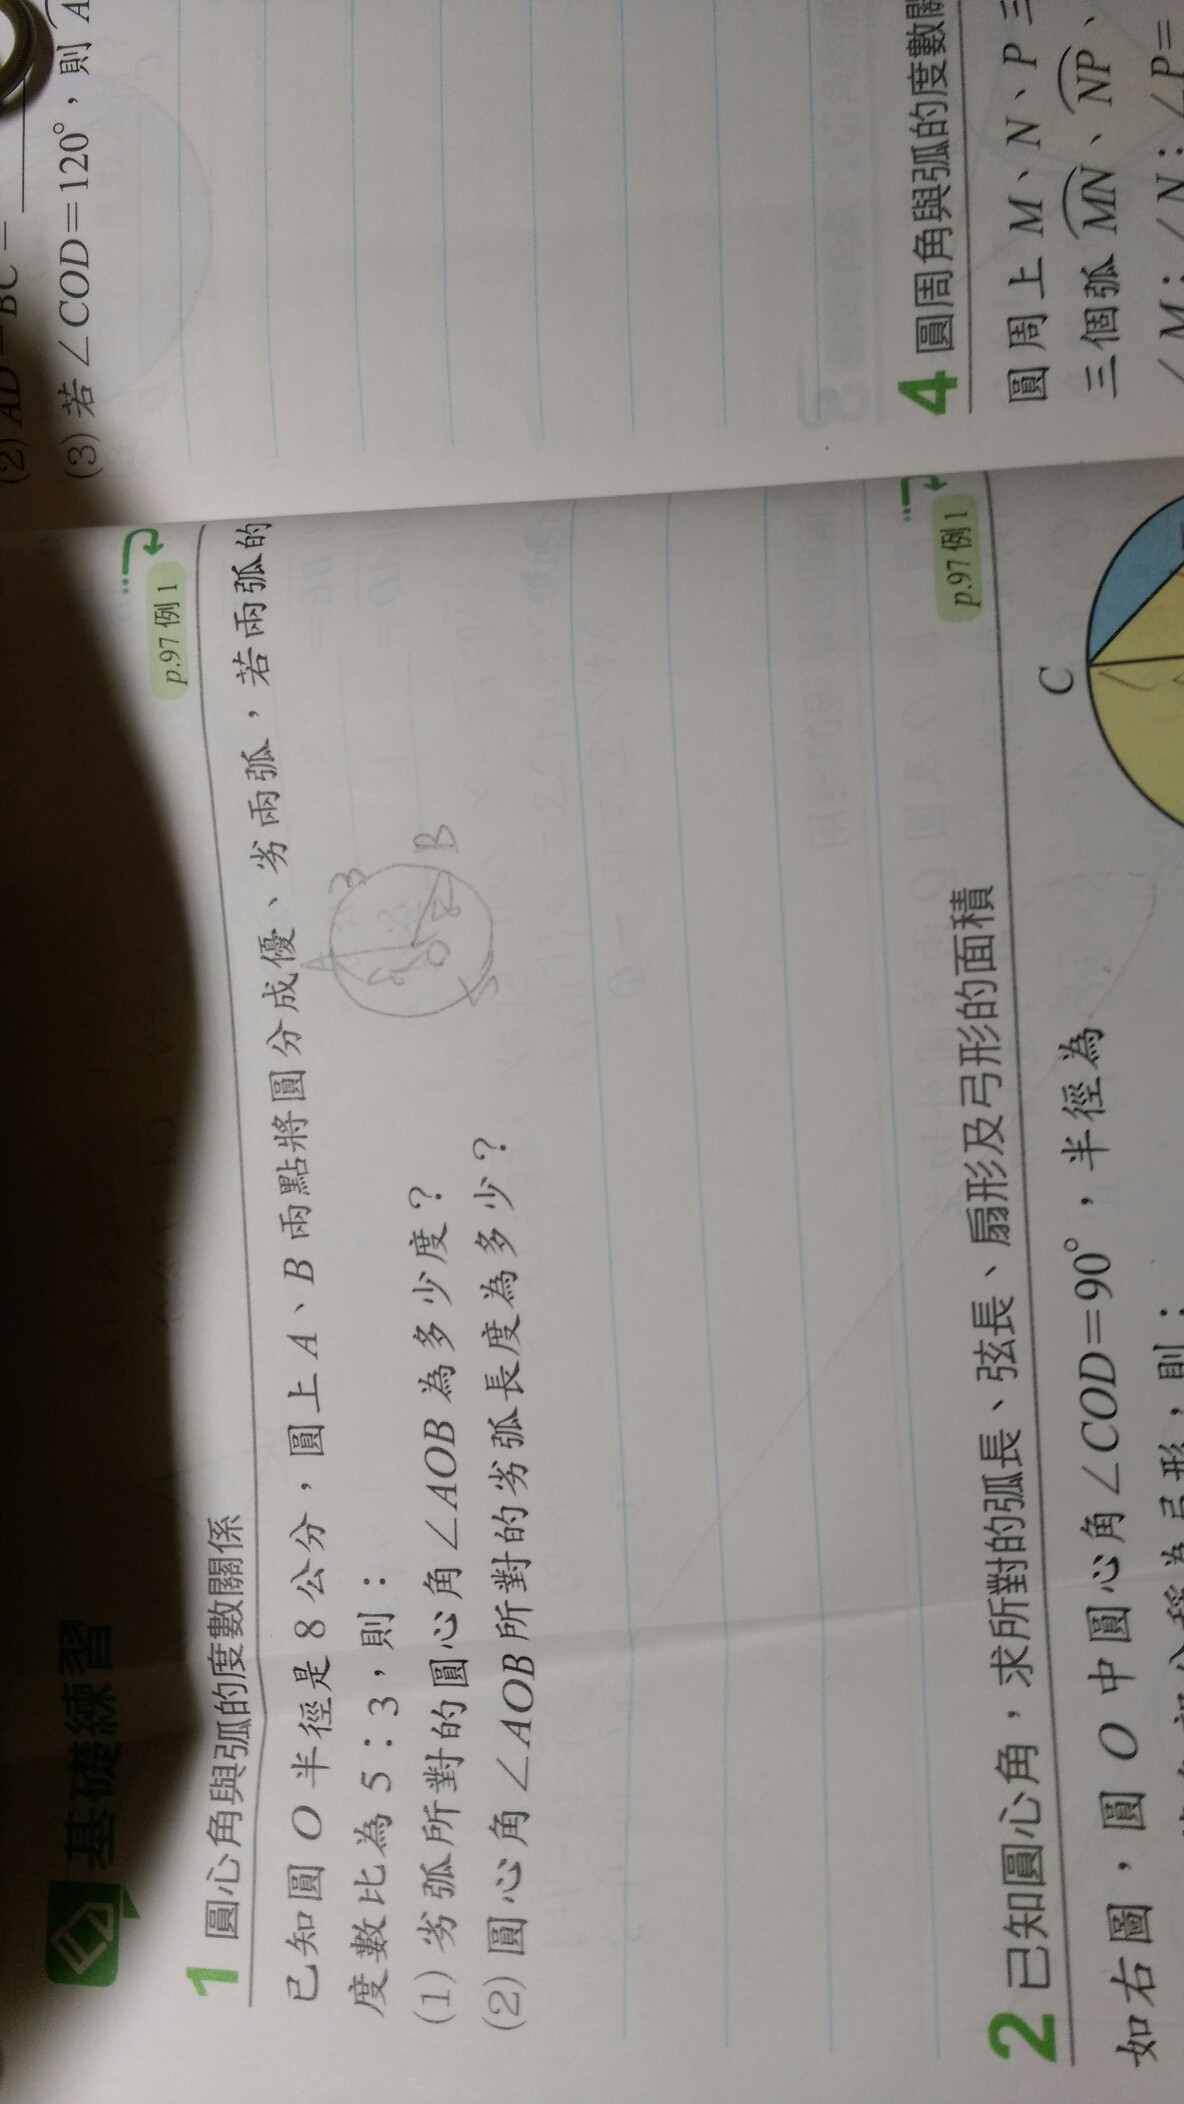 基礎練習
1 圓心角與弧的度數關係
p.97 例 1
已知圓 O 半徑是 8 公分，圓上 A、B 兩點將圓分成優、劣兩弧，若兩弧的
度數比為 5：3，則：
(1) 劣弧所對的圓心角 ∠AOB 為多少度？
(2) 圓心角 ∠AOB 所對的劣弧長度為多少？
A
3
B
8
8
O
5
2 已知圓心角，求所對的弧長、弦長、扇形及弓形的面積
p.97 例 1
如右圖，圓 O 中圓心角 ∠COD=90°，半徑為
C
(2) AD
(3) 若 ∠COD=120°，則
4 圓周角與弧的度數
圓周上 M、N、P 三
三個弧 MN、NP、
∠M：∠N：∠P=